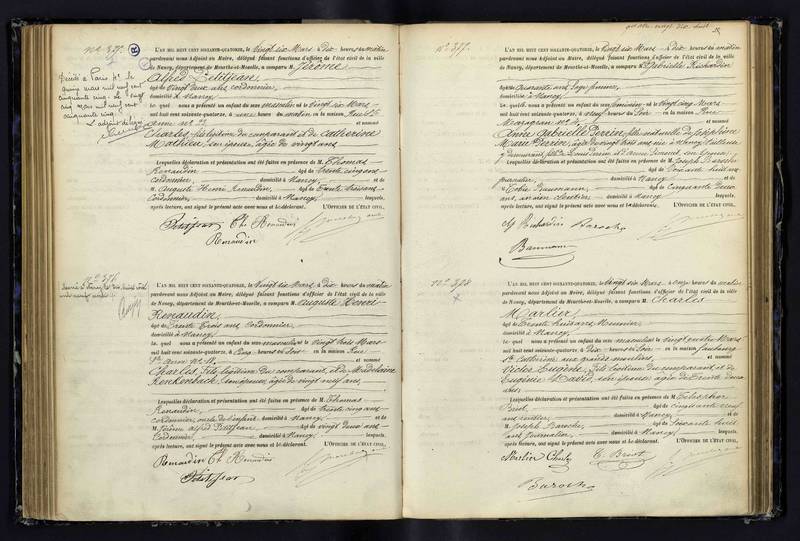 No. 375.
Décédé à Paris
mars mil neuf cent
cinquante cinq. Le vingt
cinq mars mil neuf cent
cinquante cinq.
L'an mil huit cent soixante-quatorze, le Vingt six Mars à Dix heures du matin
pardevant nous Adjoint au Maire, délégué faisant fonctions d'officier de l'état civil de la ville
de Nancy, département de Meurthe-et-Moselle, a comparu M. Jérôme
Alfred Petitjean
âgé de Vingt deux ans cordonnier,
domicilié à Nancy
Le quel nous a présenté un enfant du sexe masculin né le Vingt six Mars
mil huit cent soixante-quatorze, à une heure du matin, en la maison Rue Ste
Anne No. 12 et nommé
Charles, fils légitime du comparant et de Catherine
Mathieu, son épouse, âgée de vingt ans
Lesquelles déclaration et présentation ont été faites en présence de M. Thomas
Renaudin âgé de trente cinq ans
Cordonnier, domicilié à Nancy et de
M. Auguste Henri Renaudin, âgé de Trente trois ans
Cordonnier, domicilié à Nancy lesquels,
après lecture, ont signé le présent acte avec nous et le déclarant. L'Officier de l'état civil,
Petitjean Th Renaudin
Renaudin
No. 376.
L'an mil huit cent soixante-quatorze, le Vingt six Mars à Dix heures du matin
pardevant nous Adjoint au Maire, délégué faisant fonctions d'officier de l'état civil de la ville
de Nancy, département de Meurthe-et-Moselle, a comparu M. Auguste Henri
Renaudin,
âgé de Trente trois ans Cordonnier,
domicilié à Nancy
Le quel nous a présenté un enfant du sexe masculin né le Vingt trois Mars
mil huit cent soixante-quatorze, à Cinq heures du Soir en la maison Rue
Ste Anne No. 12, et nommé
Charles, Fils légitime du comparant, et de Madelaine
Renkenbach, son épouse, âgée de vingt neuf ans,
Lesquelles déclaration et présentation ont été faites en présence de M. Thomas
Renaudin, âgé de trente cinq ans
cordonnier, oncle de l'enfant domicilié à Nancy et de
M. Jérôme Alfred Petitjean âgé de vingt deux ans
Cordonnier, domicilié à Nancy lesquels,
après lecture, ont signé le présent acte avec nous et le déclarant. L'Officier de l'état civil,
Renaudin Th Renaudin
Petitjean
quatre vingt dix huit
No. 377.
L'an mil huit cent soixante-quatorze, le Vingt six Mars à Dix heures du matin
pardevant nous Adjoint au Maire, délégué faisant fonctions d'officier de l'état civil de la ville
de Nancy, département de Meurthe-et-Moselle, a comparu Gabrielle Richardin
ans, Sage femme,
domicilié à Nancy
La quelle nous a présenté un enfant du sexe féminin né le Vingt cinq Mars
mil huit cent soixante-quatorze, à heures du Soir en la maison Rue
et nommé
Anne Gabrielle Perrin, fille naturelle de Joséphine
Marie Perrin, âgée de vingt trois ans née à Nancy
y demeurant
Lesquelles déclaration et présentation ont été faites en présence de M. Joseph Baroche
âgé de Soixante huit ans
journalier, domicilié à Nancy et de
M. Baumann, âgé de Cinquante deux
ans, domicilié à Nancy lesquels,
après lecture, ont signé le présent acte avec nous et la déclarante. L'Officier de l'état civil,
Richardin Baroche
Baumann
No. 378
L'an mil huit cent soixante-quatorze, le Vingt six Mars à onze heures du matin
pardevant nous Adjoint au Maire, délégué faisant fonctions d'officier de l'état civil de la ville
de Nancy, département de Meurthe-et-Moselle, a comparu M. Charles
âgé de Trente huit ans
domicilié à Nancy
Le quel nous a présenté un enfant du sexe masculin né le Vingt quatre Mars
mil huit cent soixante-quatorze, à Dix heures du Soir en la maison faubourg
Ste Catherine aux grands moulins, et nommé
Victor Eugène, Fils légitime du comparant et de
Eugénie David, son épouse, âgée de Trente deux
ans,
Lesquelles déclaration et présentation ont été faites en présence de M.
Briot, âgé de Cinquante
ans domicilié à Nancy et de
M. Joseph Baroche, âgé de Soixante huit
ans Journalier, domicilié à Nancy lesquels,
après lecture, ont signé le présent acte avec nous et le déclarant. L'Officier de l'état civil,
Briot
Baroche